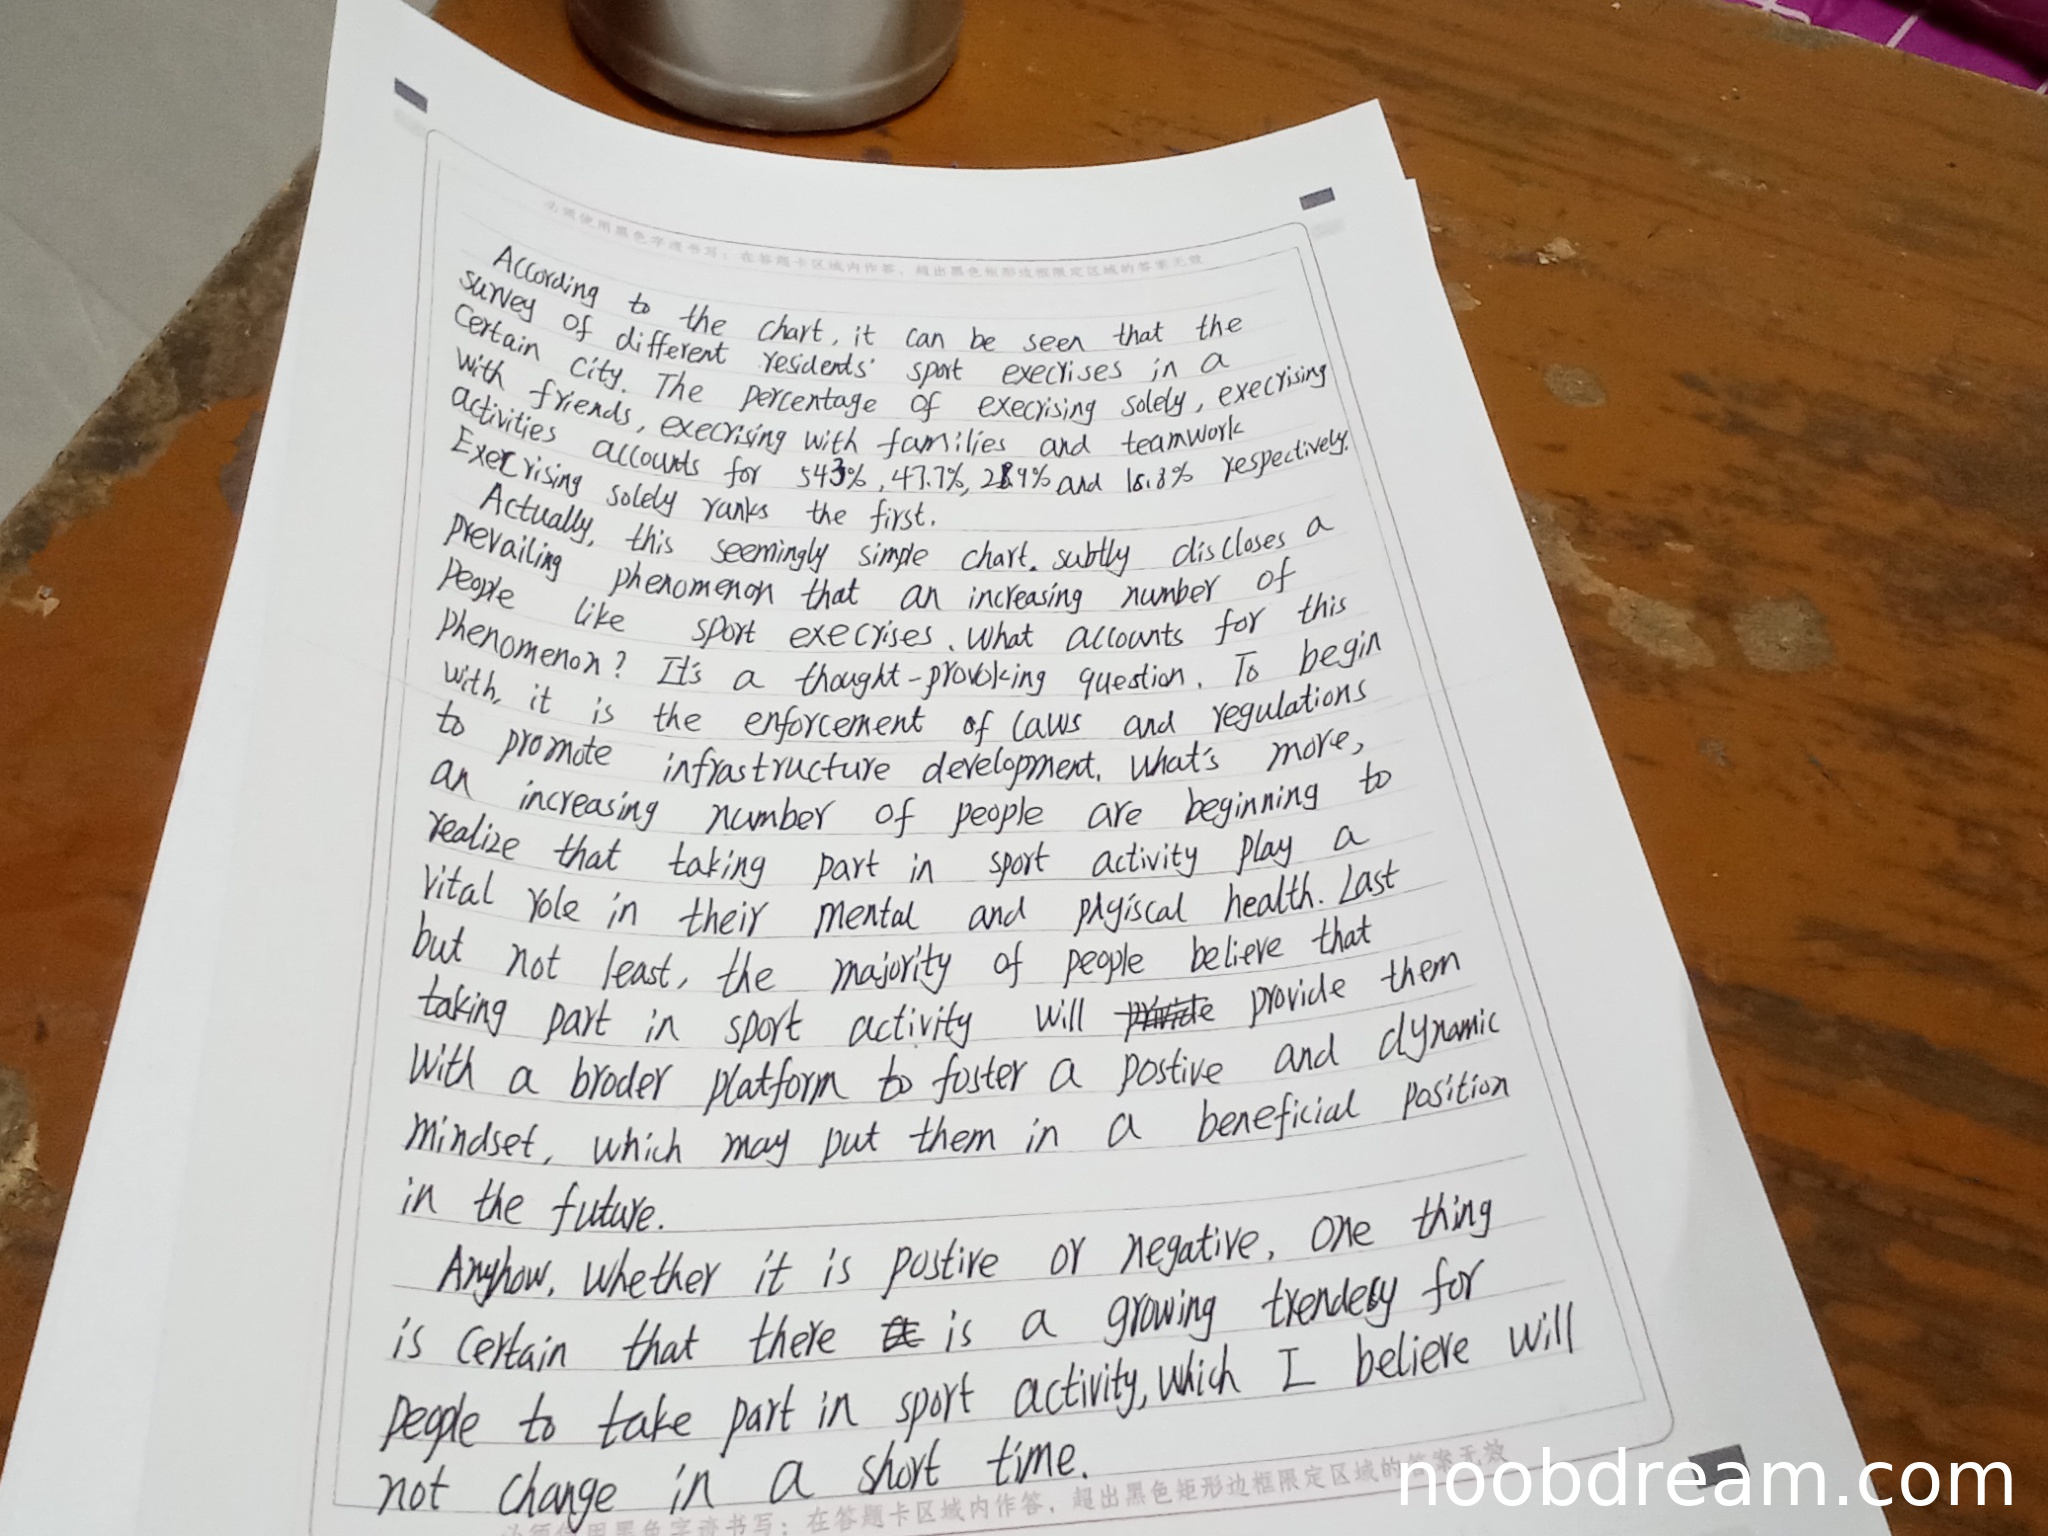 必须使用黑色字迹书写；在答题卡区域内作答，超出黑色矩形边框限定区域的答案无效
According to the chart, it can be seen that the
survey of different residents' sport execrises in a
Certain City. The percentage of execrising solely, execrising
with friends, execrising with families and teamwork
activities accounts for 54.3%, 47.7%, 23.9% and 18.8% respectively.
Execrising solely ranks the first.
Actually, this seemingly simple chart. subtly discloses a
prevailing phenomenon that an increasing number of
people like sport execrises. What accounts for this
phenomenon? It's a thought-provoking question. To begin
with, it is the enforcement of laws and regulations
to promote infrastructure development. What's more,
an increasing number of people are beginning to
realize that taking part in sport activity play a
vital role in their mental and phyiscal health. Last
but not least, the majority of people believe that
taking part in sport activity will provide them
With a broder platform to foster a postive and dynamic
mindset, which may put them in a beneficial position
in the future.
Anyhow, Whether it is postive or negative, one thing
is certain that there is a growing for
people to take part in sport activity, which I believe will
not change in a short time.
必须使用黑色字迹书写；在答题卡区域内作答，超出黑色矩形边框限定区域的答案无效
noobdream.com